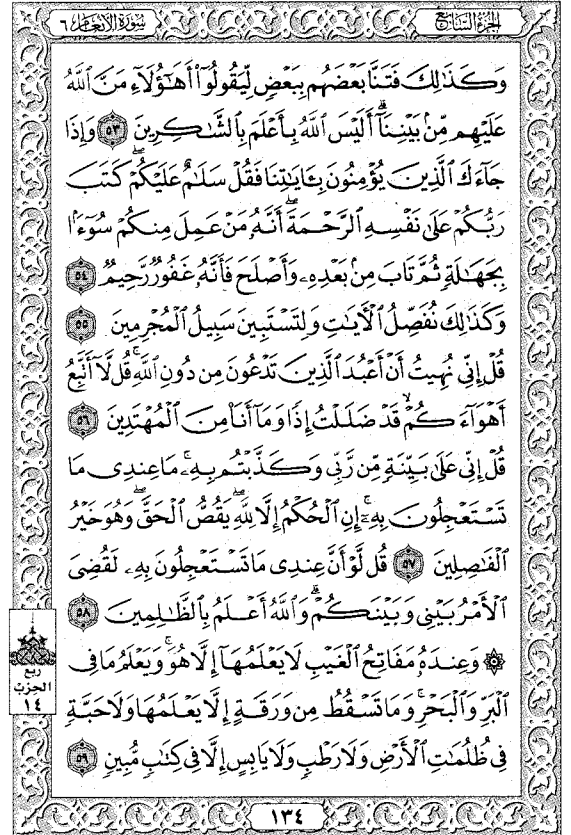 سورة الأنعام ٦
الجزء السابع
وَكَذَٰلِكَ فَتَنَّا بَعْضَهُم بِبَعْضٍ لِّيَقُولُوٓا۟ أَهَٰٓؤُلَآءِ مَنَّ ٱللَّهُ
عَلَيْهِم مِّنۢ بَيْنِنَآ ۗ أَلَيْسَ ٱللَّهُ بِأَعْلَمَ بِٱلشَّٰكِرِينَ ٥٣ وَإِذَا
جَآءَكَ ٱلَّذِينَ يُؤْمِنُونَ بِـَٔايَٰتِنَا فَقُلْ سَلَٰمٌ عَلَيْكُمْ ۖ كَتَبَ
رَبُّكُمْ عَلَىٰ نَفْسِهِ ٱلرَّحْمَةَ ۖ أَنَّهُۥ مَنْ عَمِلَ مِنكُمْ سُوٓءًۢا
بِجَهَٰلَةٍ ثُمَّ تَابَ مِنۢ بَعْدِهِۦ وَأَصْلَحَ فَأَنَّهُۥ غَفُورٌ رَّحِيمٌ ٥٤
وَكَذَٰلِكَ نُفَصِّلُ ٱلْـَٔايَٰتِ وَلِتَسْتَبِينَ سَبِيلُ ٱلْمُجْرِمِينَ ٥٥
قُلْ إِنِّى نُهِيتُ أَنْ أَعْبُدَ ٱلَّذِينَ تَدْعُونَ مِن دُونِ ٱللَّهِ ۚ قُل لَّآ أَتَّبِعُ
أَهْوَآءَكُمْ ۙ قَدْ ضَلَلْتُ إِذًا وَمَآ أَنَا۠ مِنَ ٱلْمُهْتَدِينَ ٥٦
قُلْ إِنِّى عَلَىٰ بَيِّنَةٍ مِّن رَّبِّى وَكَذَّبْتُم بِهِۦ ۚ مَا عِندِى مَا
تَسْتَعْجِلُونَ بِهِۦٓ ۚ إِنِ ٱلْحُكْمُ إِلَّا لِلَّهِ ۖ يَقُصُّ ٱلْحَقَّ ۖ وَهُوَ خَيْرُ
ٱلْفَٰصِلِينَ ٥٧ قُل لَّوْ أَنَّ عِندِى مَا تَسْتَعْجِلُونَ بِهِۦ لَقُضِىَ
ٱلْأَمْرُ بَيْنِى وَبَيْنَكُمْ ۗ وَٱللَّهُ أَعْلَمُ بِٱلظَّٰلِمِينَ ٥٨
۞ وَعِندَهُۥ مَفَاتِحُ ٱلْغَيْبِ لَا يَعْلَمُهَآ إِلَّا هُوَ ۚ وَيَعْلَمُ مَا فِى
ٱلْبَرِّ وَٱلْبَحْرِ ۚ وَمَا تَسْقُطُ مِن وَرَقَةٍ إِلَّا يَعْلَمُهَا وَلَا حَبَّةٍ
فِى ظُلُمَٰتِ ٱلْأَرْضِ وَلَا رَطْبٍ وَلَا يَابِسٍ إِلَّا فِى كِتَٰبٍ مُّبِينٍ ٥٩
ربع
الحزب
١٤
١٣٤